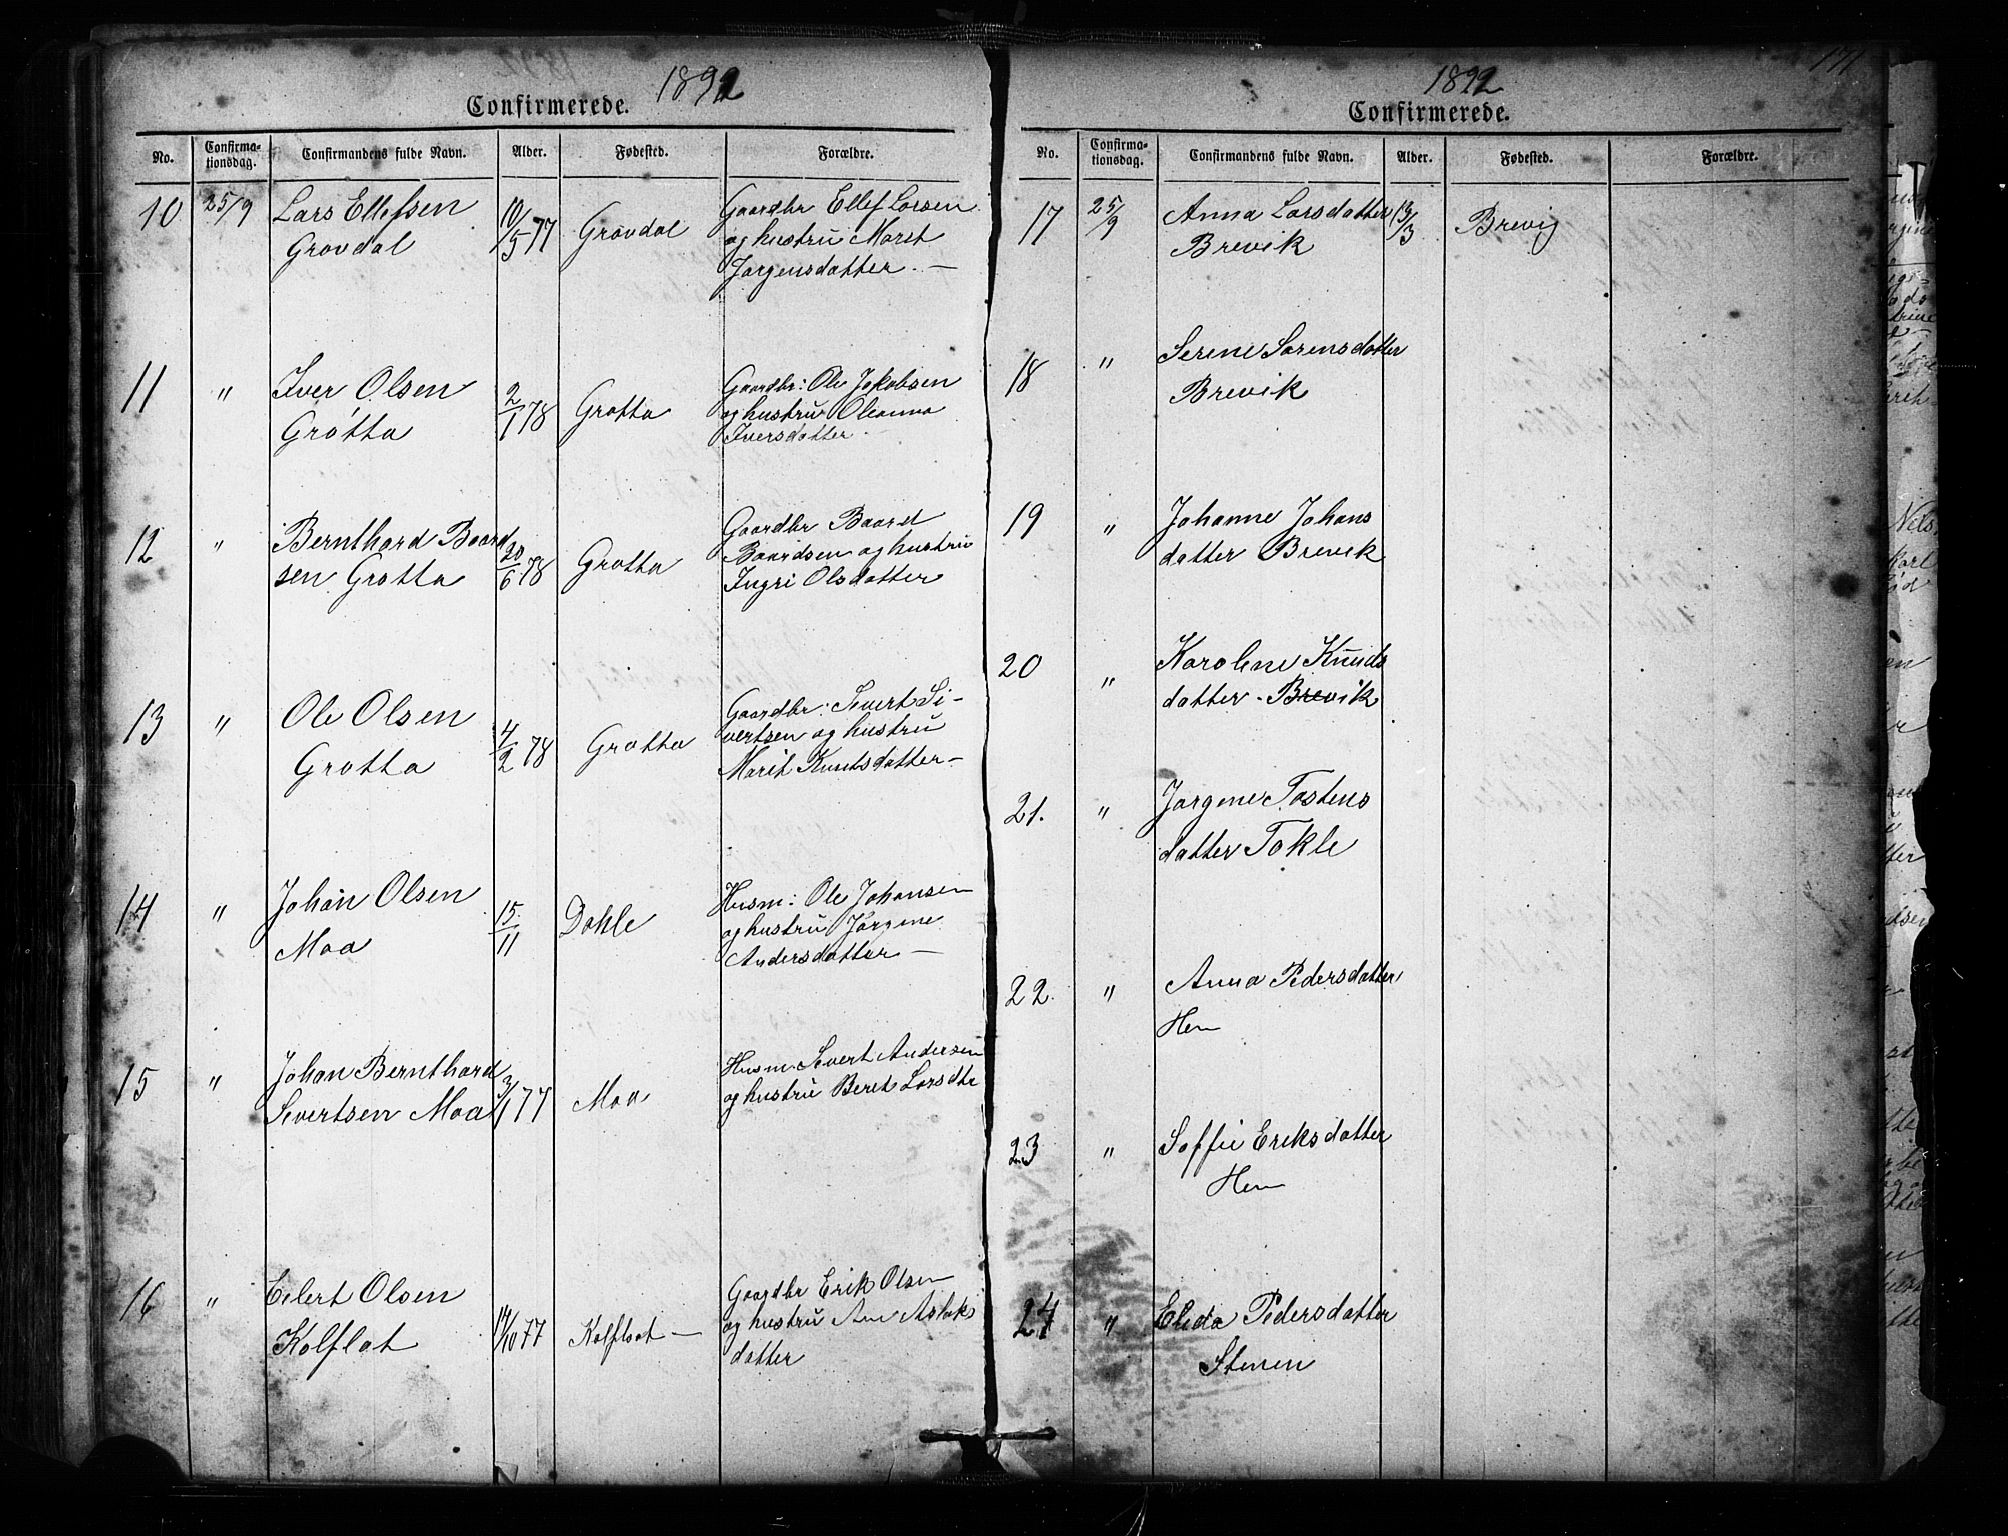 1892
Confirmerede.
No.
Confirma-
tionsdag.
Confirmandens fulde Navn.
Alder.
Fødested.
Forældre.
10
25/9
Lars Ellefsen
Grovdal
10/5 77
Grovdal
Gaardbr Ellef Larsen
og hustru Maret
Jørgensdatter. —
11
"
Iver Olsen
Grøtta
2/1 78
Grøtta
Gaardbr: Ole Jakobsen
og hustru Oleanna
Iversdatter —
12
"
Bernthard Baard
sen Grøtta
20/6 78
Grøtta
Gaardbr Baard
Baardsen og hustru
Ingri Olsdatter
13
"
Ole Olsen
Grøtta
4/2 78
Grøtta
Gaardbr: Sivert Si-
vertsen og hustru
Marit Knutsdatter —
14
"
Johan Olsen
Moa
15/11
Dahle
Husm: Ole Johansen
og hustru Jørgine
Andersdatter —
15
"
Johan Bernthard
Sivertsen Moa
3/1 77
Moa
Husm. Sivert Andersen
og hustru Beret Larsdtr
16
"
Eilert Olsen
Kolflot
14/10 77
Kolfloat —
Gaardbr Erik Olsen
og hustru Ane Aslak
datter
171
1892
Confirmerede.
No.
Confirma-
tionsdag.
Confirmandens fulde Navn.
Alder.
Fødested.
Forældre.
17
25/9
Anna Larsdatter
Brevik
13/3
Brevig
18
"
Serine Sørensdatter
Brevik
19
"
Johanne Johans
datter Brevik
20
"
Karoline Knuds
datter Brevik
21.
"
Jørgine Tostens
datter Tokle
22.
"
Anna Pedersdatter
Hen
23
"
Soffie Eriksdatter
Hen
24
"
Elida Pedersdatter
Stenen